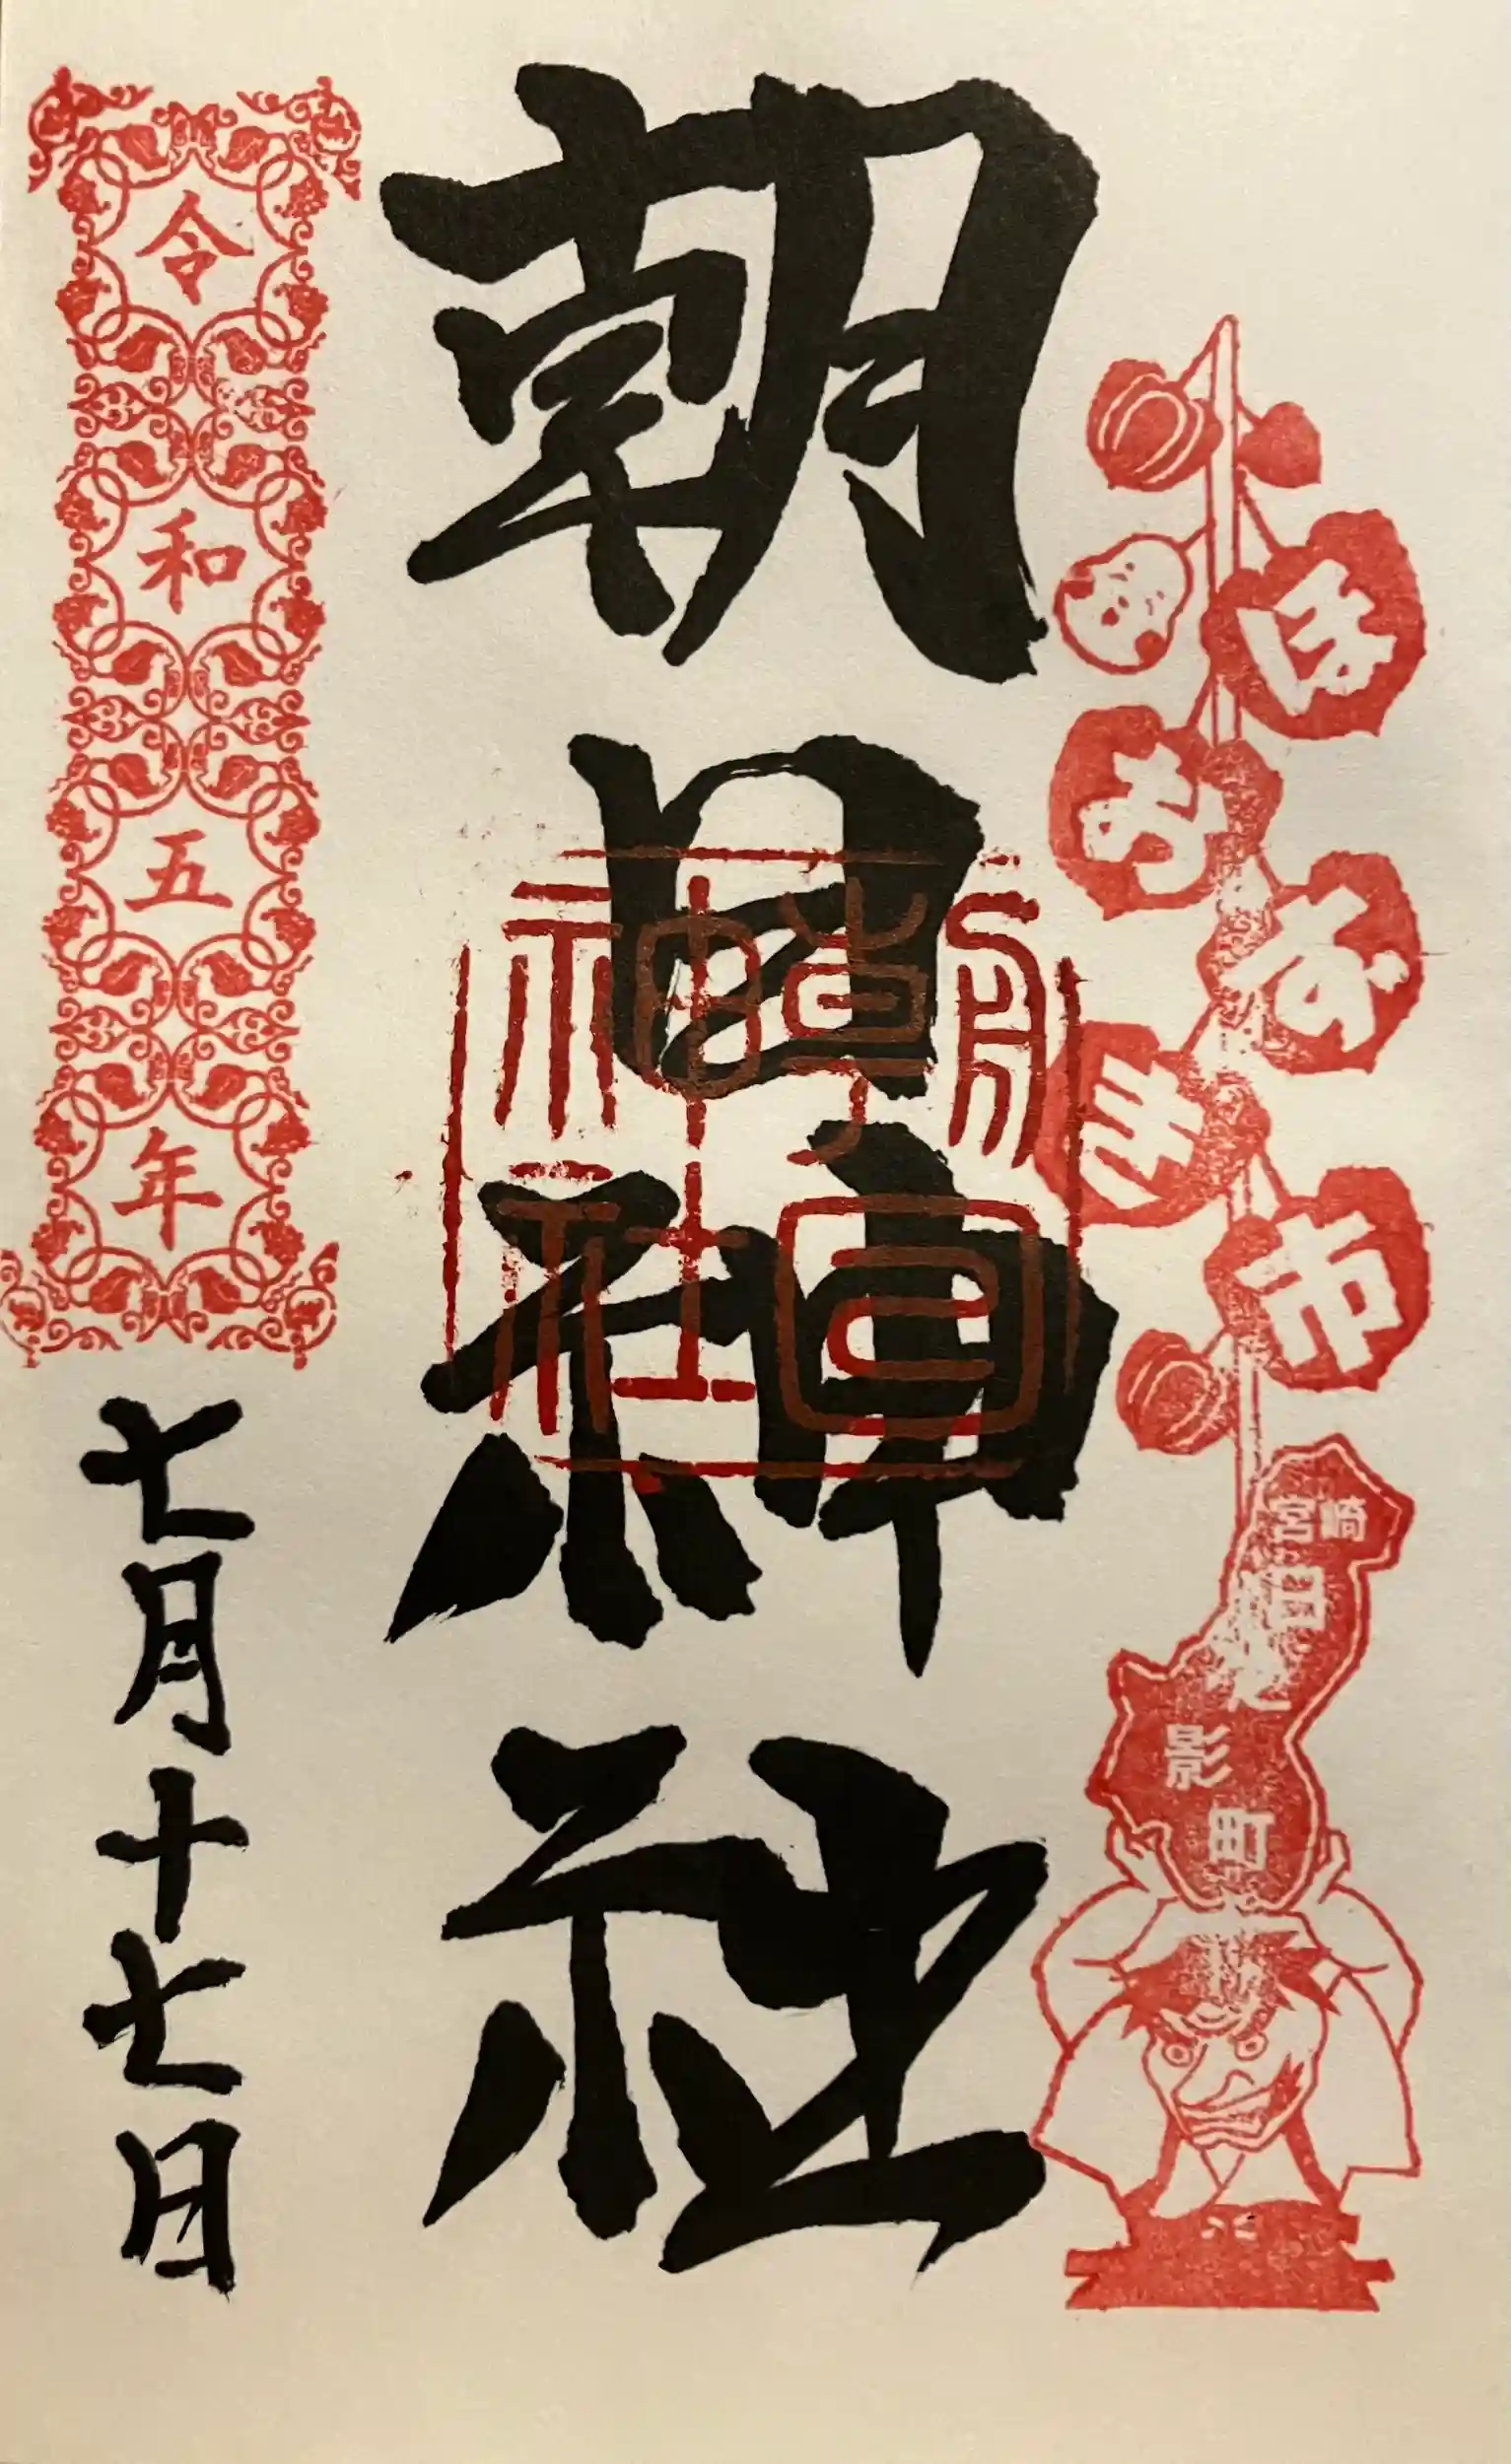 ほおずき市
宮崎
日之影町
朝日神社
朝日神社
令和五年
七月十七日